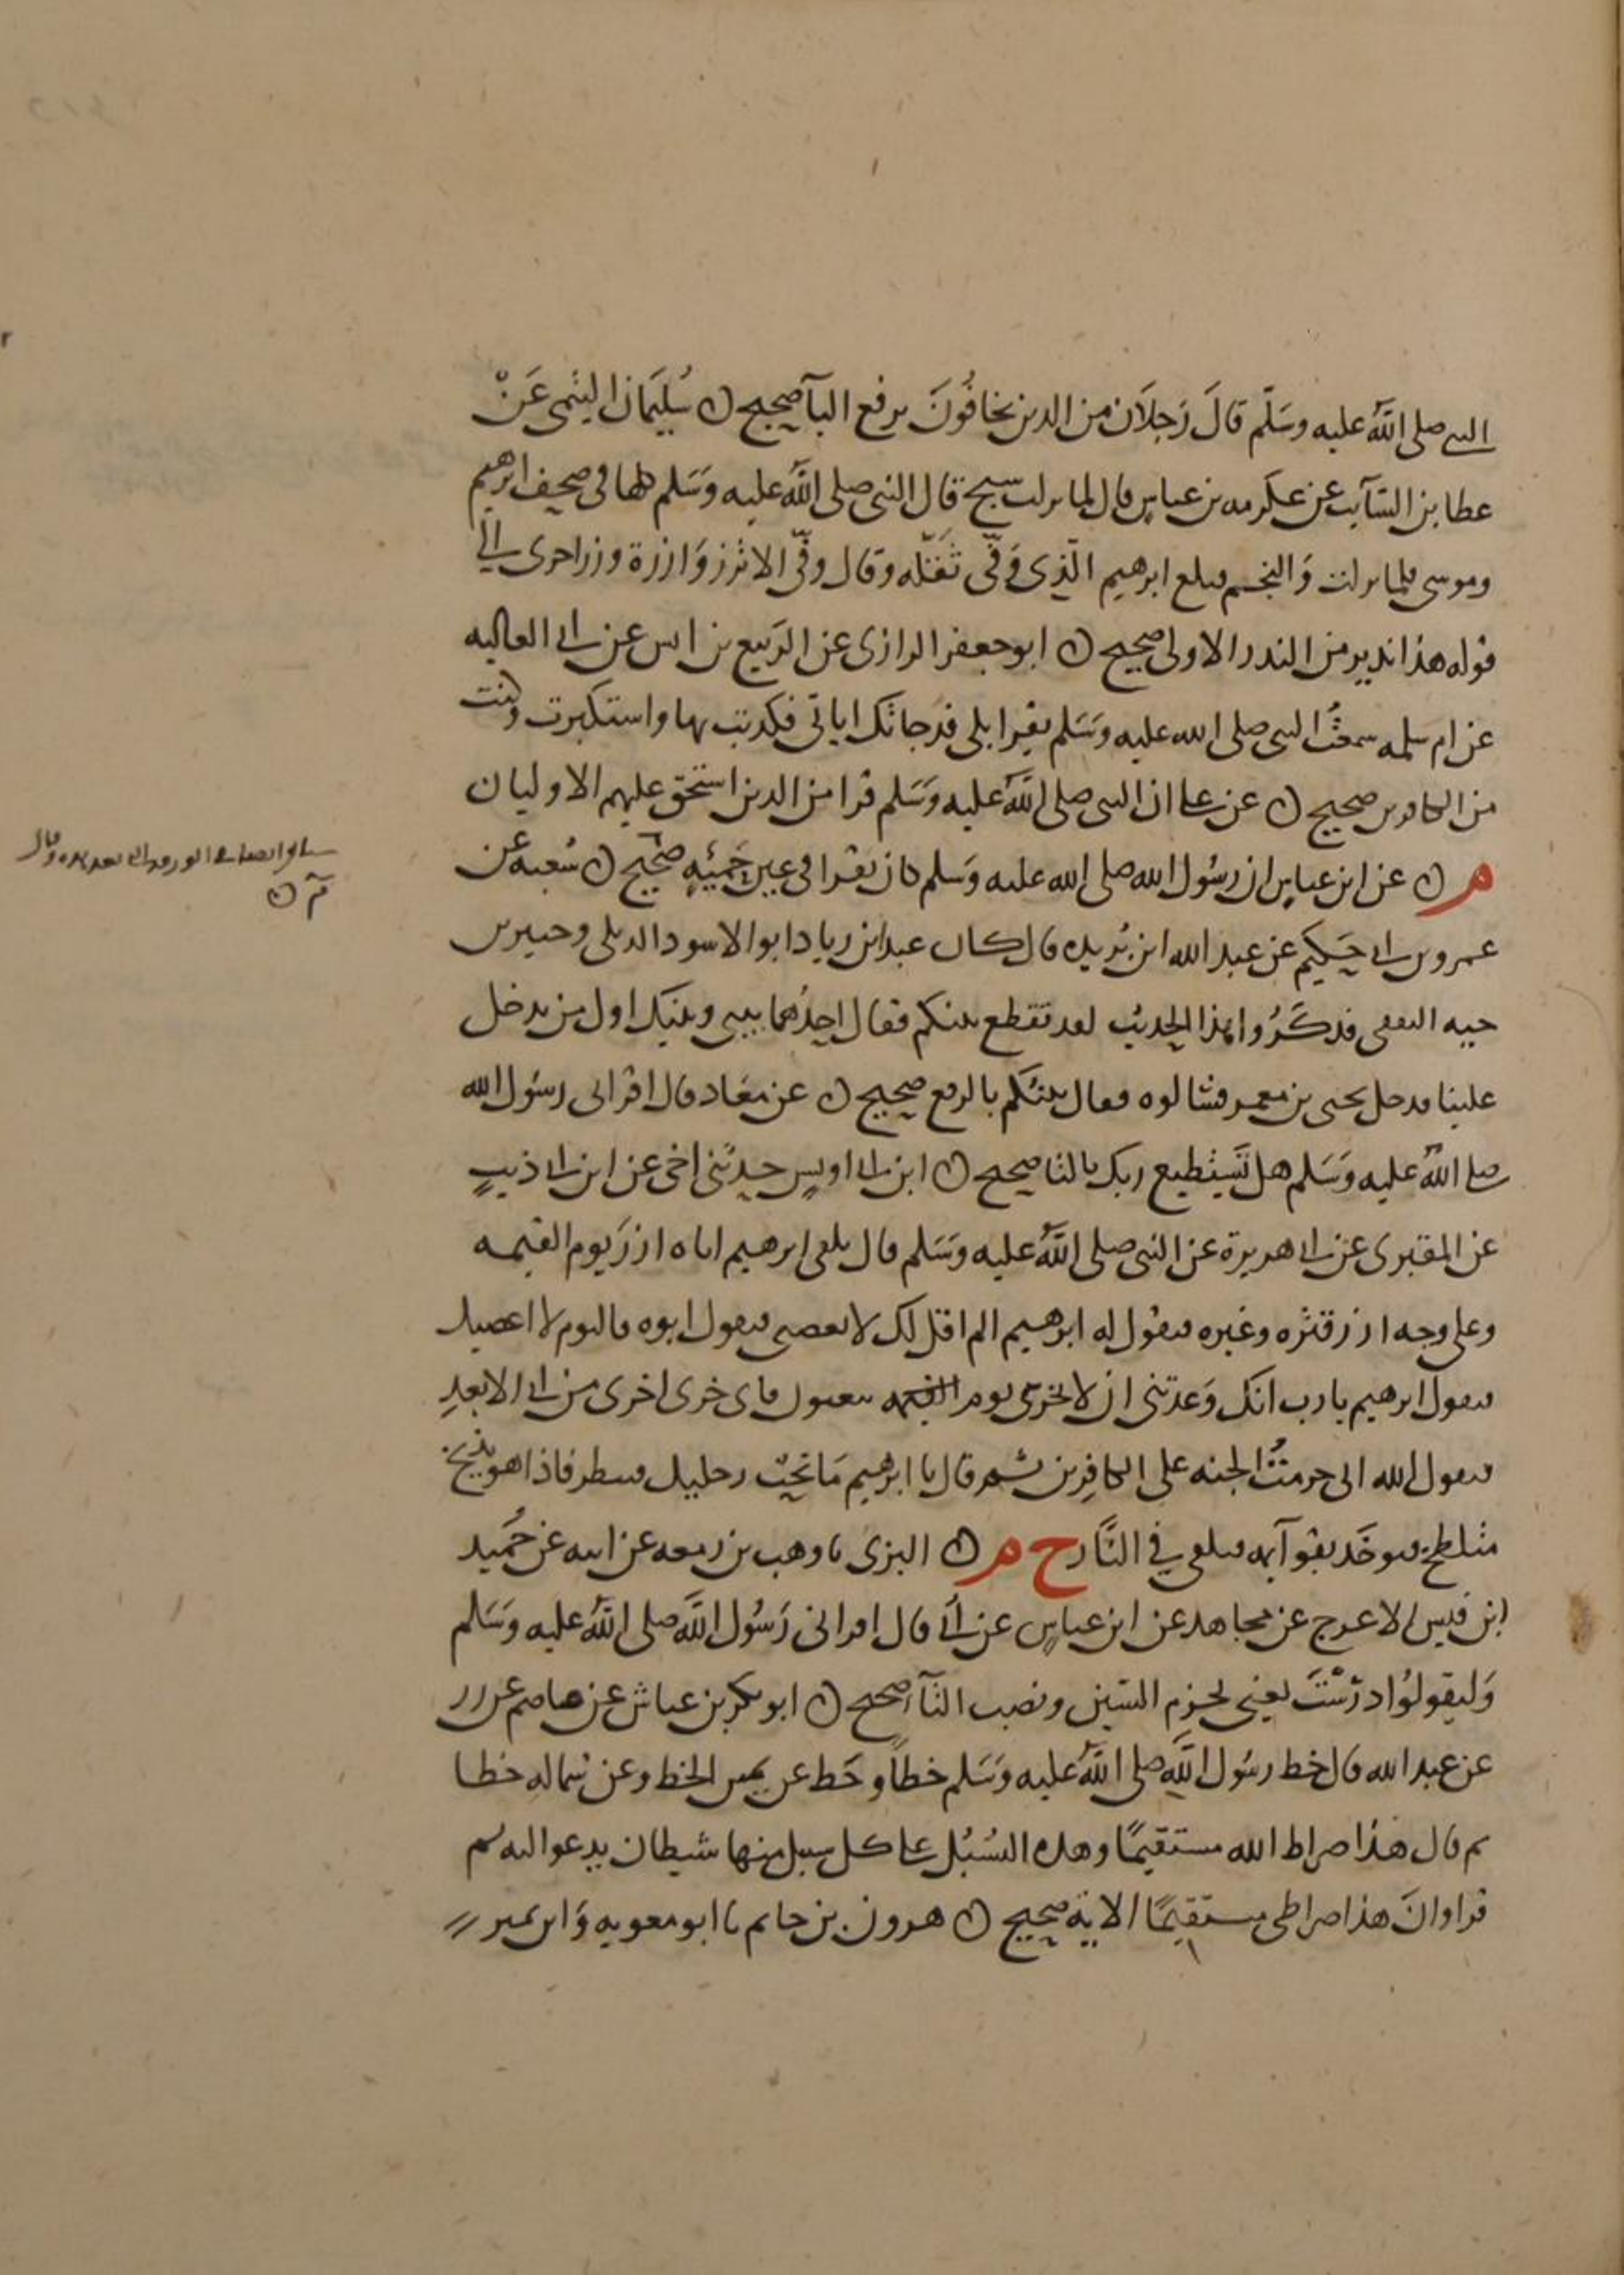 النبي صلى الله عليه وسَلّم قالَ رَجلَان من الذين يُخافُونَ برفع اليآ صحيح ن سُليمَان التيمي عَنْ
عطا بن السَّآيب عن عكرمه بن عباس قال لما نزلت سبح قال النبي صلى الله عليه وَسَلم كلها في صحف ابرهيم
وموسى فلما نزلت وَالنجم فبلغ ابرهيم الَّذى وَفَّى ثَقّله وقال وفَّى الا تزر وَازرة وزر اخرى الي
قوله هذا نذير من النذر الاولى صحيح ن ابو جعفر الرازى عن الرَبيع بن انس عن ابي العاليه
عن ام سلمه سمعتُ النبي صلى الله عليه وَسَلم يقرا بلى قد جاتكِ اياتي فكذبتِ بها واستكبرتِ وكنتِ
من الكافرين صحيح ن عن علي ان النبي صلى الله عليه وَسَلم قرا من الذين استحق عليهم الاوليان
م ن عن ابن عباس ان رسُول الله صلى الله عليه وَسَلم كان يقرا في عينٍ حَمِئَةٍ صحيح ن شعبه عن
عمرو بن ابي حَكيم عن عبد الله ابن بُريده قال كان عند ابن زياد ابو الاسود الديلى وجبير بن
حيه الثقفي فذكَرُوا هذا الحديث لقد تقطع بينكم فقال احدُهما بيني وبينك اول من يدخل
علينا فدخل يحيى بن يعمر فسَالوه فقال بينُكم بالرفع صحيح ن عن معَاذ قال اقرانى رسُول الله
صلى الله عليه وَسَلم هل تَسْتطيع ربك بالتا صحيح ن ابن ابي اويس حدثنى اخى عن ابن ابي ذيبٍ
عن المقبرى عن ابي هريرة عن النبي صلى الله عليه وَسَلم قال يلقى ابرهيم اباه ازرَ يوم القيمه
وعلى وجه ازر قتره وغبره فيقول له ابرهيم الم اقل لك لا تعصني فيقول ابوه فاليوم لا اعصيك
فيقول ابرهيم يا رب انك وَعدتني ان لا تخزني يوم القيمه فاى خزى اخزى من ابي الابعدِ
فيقول الله انى حرمتُ الجنه على الكافِرين ثم قال يا ابرهيم مَا تحت رجليك فينظر فاذا هو بذيخ
متلطخ فيوخَذ بقوآيمه فيلقى في النَّار خ م ن البزى نا وهب بن زمعه عن ابيه عن حُمَيد
ابن قيس الاعرج عن مجاهد عن ابن عباسٍ عن ابيٍّ قال اقرانى رَسُول اللَّه صلى الله عليه وَسَلم
وَليقولوُا درَسْتَ يعنى بجزم السّين ونصب التآ صحيح ن ابو بكر بن عياش عن عاصم عن زر
عن عبد الله قال خط رسُول اللَّه صلى الله عليه وَسَلم خطاً وخَط عن يمين الخط وعن شماله خطا
ثم قال هذا صراط الله مستقيمًا وهذه السُبُل على كل سبيل منها شيطان يدعو اليه ثم
قرا وانَ هذا صراطى مستقيمًا الاية صحيح ن هرون بن حاتم نا ابو معويه وَابن نمير